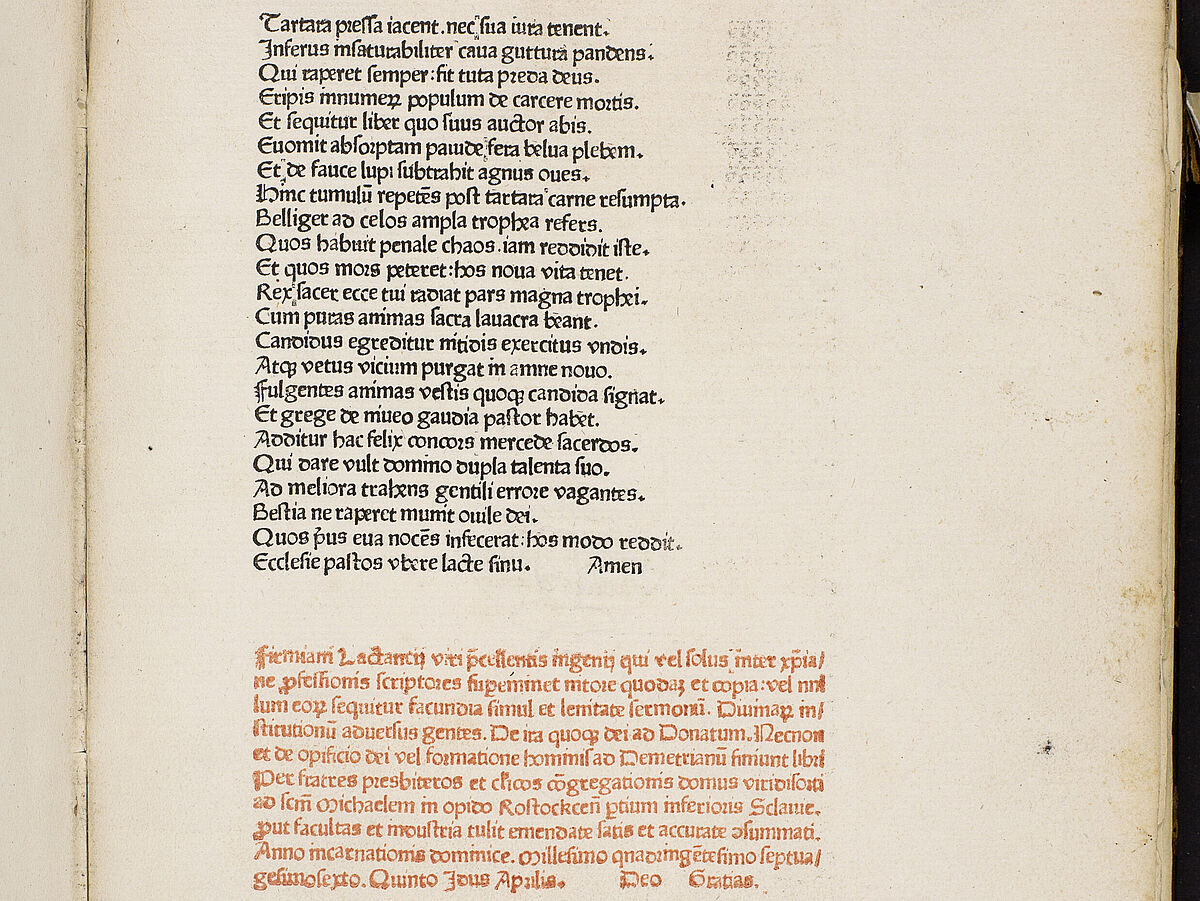 Tartara pressa iacent. nec sua iura tenent.
Inferus insaturabiliter caua guttura pandens.
Qui raperet semper: fit tuta preda deus.
Eripis innumeꝝ populum de carcere mortis.
Et sequitur liber quo suus auctor abis.
Euomit absorptam pauide fera belua plebem.
Et de fauce lupi subtrahit agnus oues.
Hinc tumulū repetēs post tartara carne resumpta.
Belliger ad celos ampla trophea refers.
Quos habuit penale chaos. iam reddidit iste.
Et quos mors peteret: hos noua vita tenet.
Rex sacer ecce tui radiat pars magna trophei.
Cum puras animas sacra lauacra beant.
Candidus egreditur nitidis exercitus vndis.
Atqꝫ vetus vicium purgat in amne nouo.
Fulgentes animas vestis quoqꝫ candida signat.
Et grege de niueo gaudia pastor habet.
Additur hac felix concors mercede sacerdos.
Qui dare vult domino dupla talenta suo.
Ad meliora trahens gentili errore vagantes.
Bestia ne raperet munit ouile dei.
Quos p̄us eua nocēs infecerat: hos modo reddit.
Ecclesie pastos vbere lacte sinu. Amen
Firmiani Lactantij viri p̄cellentis ingenij qui vel solus inter xp̄ia/
ne ꝓfessionis scriptores suꝑeminet nitore quodaꝫ et copia: vel nul
lum eoꝝ sequitur facundia simul et lenitate sermonū. Diuinaꝝ in/
stitutionū aduersus gentes. De ira quoqꝫ dei ad Donatum. Necnon
et de opificio dei vel formatione hominis ad Demetrianū finiunt libri
Per fratres presbiteros et cl̄icos cōgregationis domus viridisorti
ad scm̄ Michaelem in opido Rostockceñ ꝑtium inferioris Sclauie.
ꝓut facultas et industria tulit emendate satis et accurate ↄsummati.
Anno incarnationis dominice. Millesimo quadringētesimo septua/
gesimosexto. Quinto Idus Aprilis. Deo Gratias.